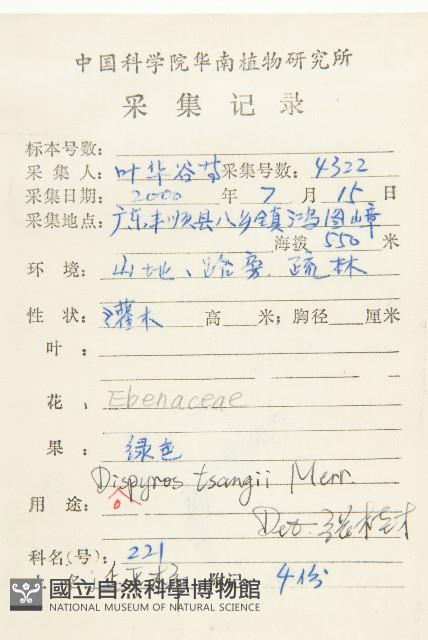 中国科学院华南植物研究所
采集记录
标本号数:
采集人: 叶华谷等 采集号数: 4322
采集日期: 2000 年 7 月 15 日
采集地点: 广东丰顺县八乡镇鸿图嶂
海拨 550 米
环境: 山地、路旁.疏林
性状: 灌木 高 米; 胸径 厘米
叶:
花: Ebenaceae
果: 绿色
Dispyros tsangii Merr.
o
用途:
Det.
科名(号): 221
名: 附记: 4份
國立自然科學博物館
NATIONAL MUSEUM OF NATURAL SCIENCE